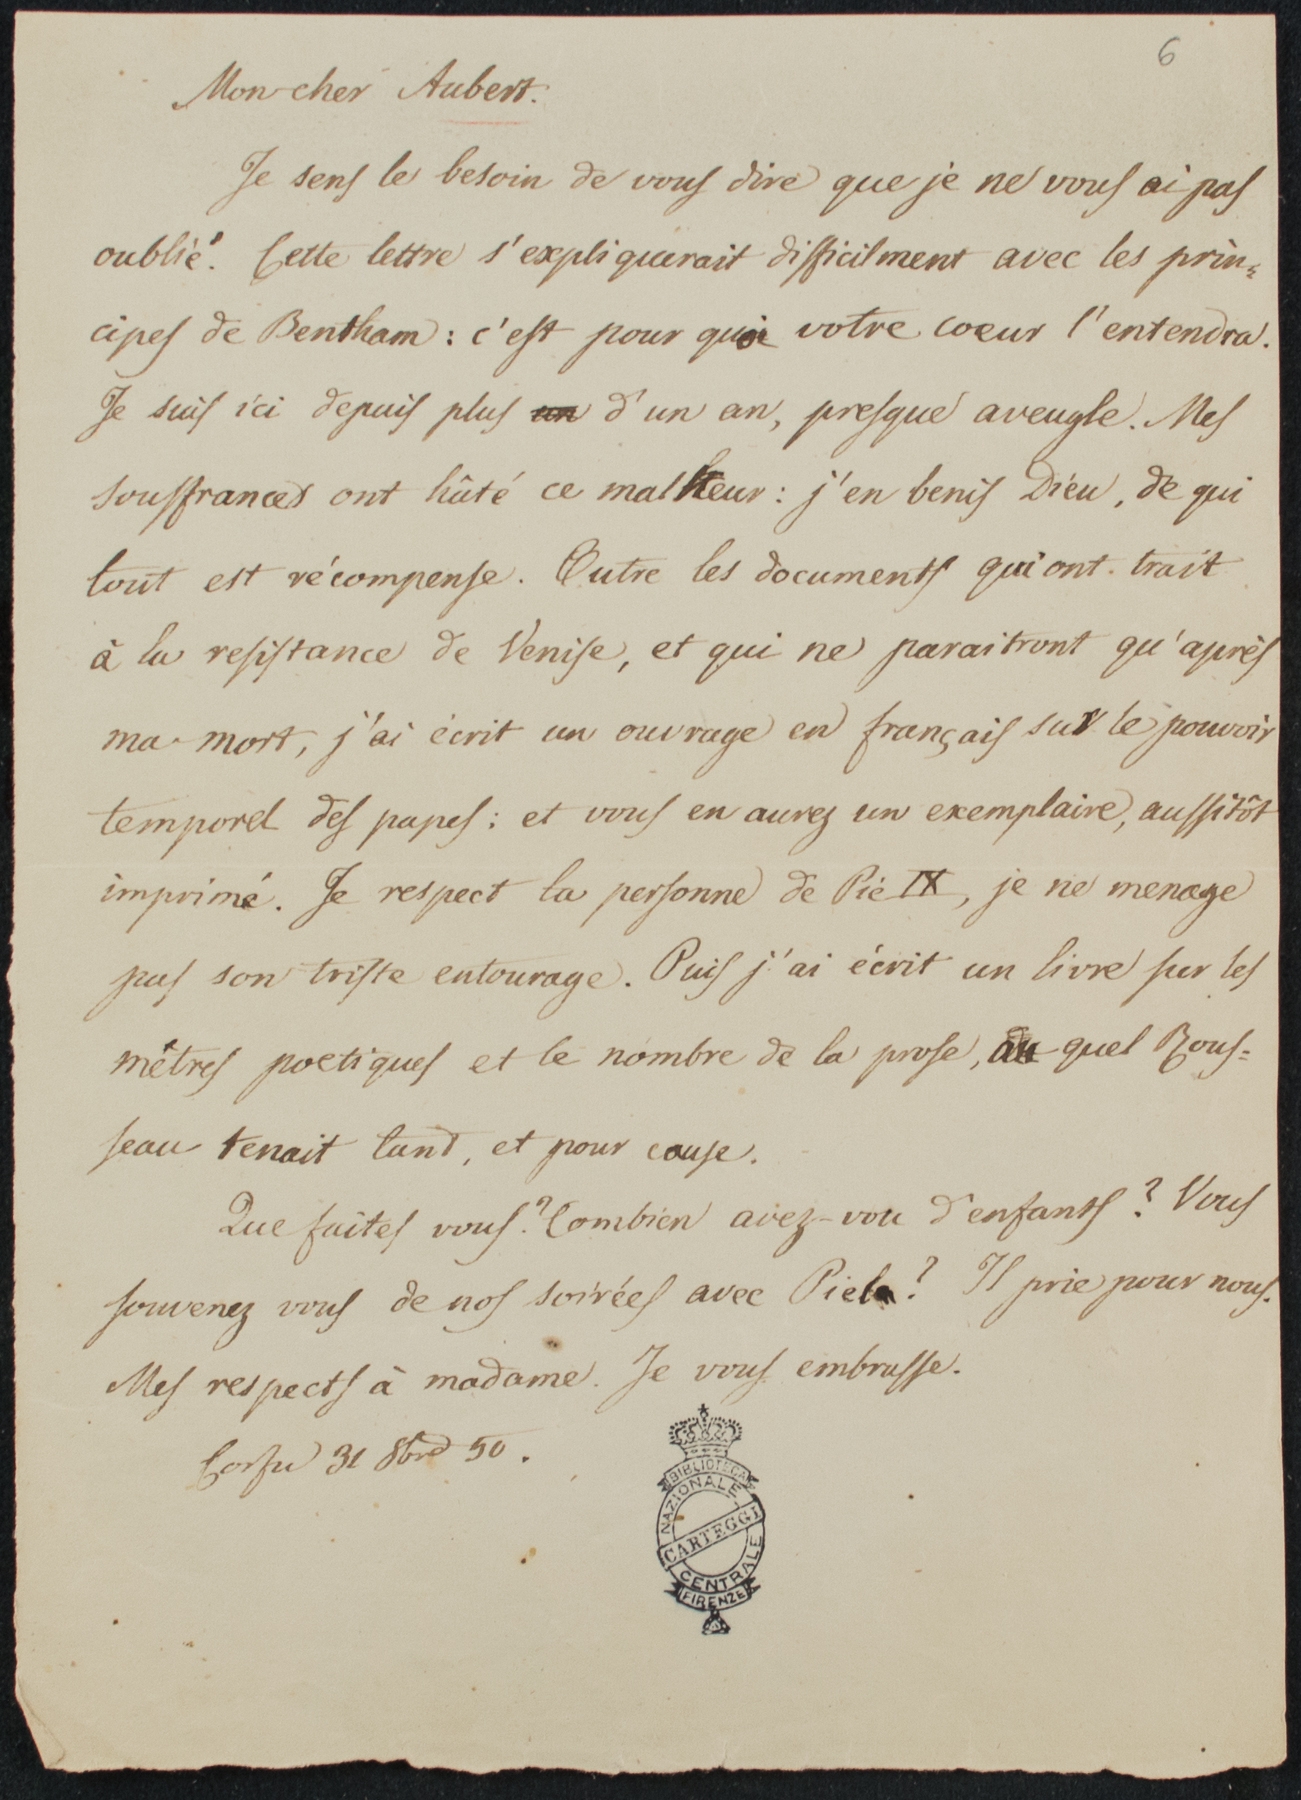 6
Mon cher Aubert.
Je sens le besoin de vous dire que je ne vous ai pas
oublié. Cette lettre s'expliquerait difficilment avec les prin=
cipes de Bentham : c'est pour quoi votre coeur l'entendra.
Je suis ici depuis plus un d'un an, presque aveugle. Mes
souffrances ont hâté ce malheur : j'en benis Dieu, de qui
tout est récompense. Outre les documents qui ont trait
à la resistance de Venise, et qui ne paraitront qu'après
ma mort, j'ai écrit un ouvrage en français sur le pouvoir
temporel des papes ; et vous en aurez un exemplaire, aussitôt
imprimé. Je respect la personne de Pie IX, je ne menage
pas son triste entourage. Puis j'ai écrit un livre sur les
mètres poetiques et le nombre de la prose, au quel Rous=
seau tenait tant, et pour cause.
Que faites vous ? Combien avez-vou d'enfants ? Vous
souvenez vous de nos soirées avec ? Il prie pour nous.
Mes respects à madame. Je vous embrasse.
Corfu 31 8bre 50.
BIBLIOTECA
NAZIONALE
CARTEGGI
CENTRALE
FIRENZE